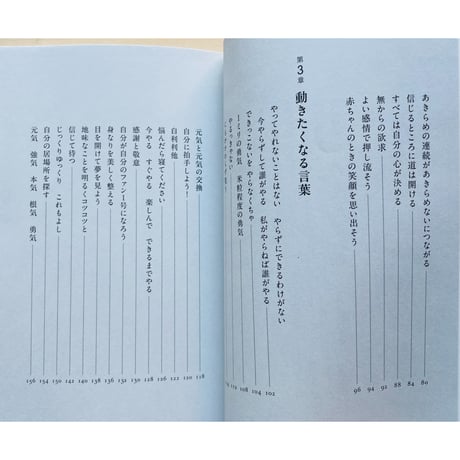 あきらめの連続があきらめないにつながる 80
信じるところに道は開ける 84
すべては自分の心が決める 88
無からの欲求 92
よい感情で押し流そう 94
赤ちゃんのときの笑顔を思い出そう 96
第3章 動きたくなる言葉
やってやれないことはない やらずにできるわけがない 102
今やらずして誰がやる 私がやらねば誰がやる 104
できっこないを やらなくちゃ 108
1ミリの勇気 米粒程度の勇気
元気と元気の交換 118
自分に拍手しよう! 120
自利利他 122
悩んだら寝てください 126
今やる すぐやる 楽しんで できるまでやる 128
感謝と敬意 130
自分が自分のファン1号になろう 132
身なりを美しく整える 136
目を開けて夢を見よう 138
地味なことを明るくコツコツと 140
信じて待つ 142
じっくりゆっくり これもよし 150
自分の居場所を探す 154
元気 強気 本気 根気 勇気 156